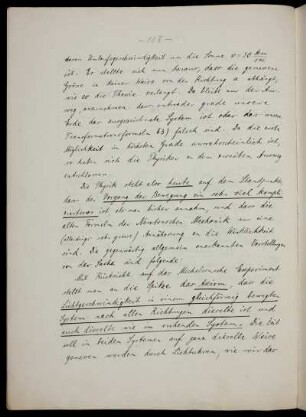 - 118 -
deren Umlaufsgeschwindigkeit um die Sonne v = 30 km/sec
ist. Es stellte sich nun heraus, dass die gemessene
Grösse in keiner Weise von der Richtung α abhängt,
wie es die Theorie verlangt. Da bleibt nur der Aus-
weg, anzunehmen, dass entweder gerade unsere
Erde das ausgezeichnete System ist oder dass unsere
Transformationsformeln 63) falsch sind. Da die erste
Möglichkeit im höchsten Grade unwahrscheinlich ist,
so haben sich die Physiker zu dem zweiten Ausweg
entschlossen.
Die Physik steht also heute auf dem Standpunkt,
dass der Vorgang der Bewegung ein sehr viel kompli-
zierterer ist als man bisher annahm, und dass die
alten Formeln der Newtonschen Mechanik nur eine
(allerdings sehr genaue) Annäherung an die Wirklichkeit
sind. Die gegenwärtig allgemein anerkannten Vorstellungen
von der Sache sind folgende:
Mit Rücksicht auf das Michelsonsche Experiment
stellt man an die Spitze das Axiom, dass die
Lichtgeschwindigkeit in einem gleichförmig bewegten
System nach allen Richtungen dieselbe ist und
auch dieselbe wie im ruhenden System. Die Zeit
soll in beiden Systemen auf ganz dieselbe Weise
gemessen werden durch Lichtuhren, wie wir das